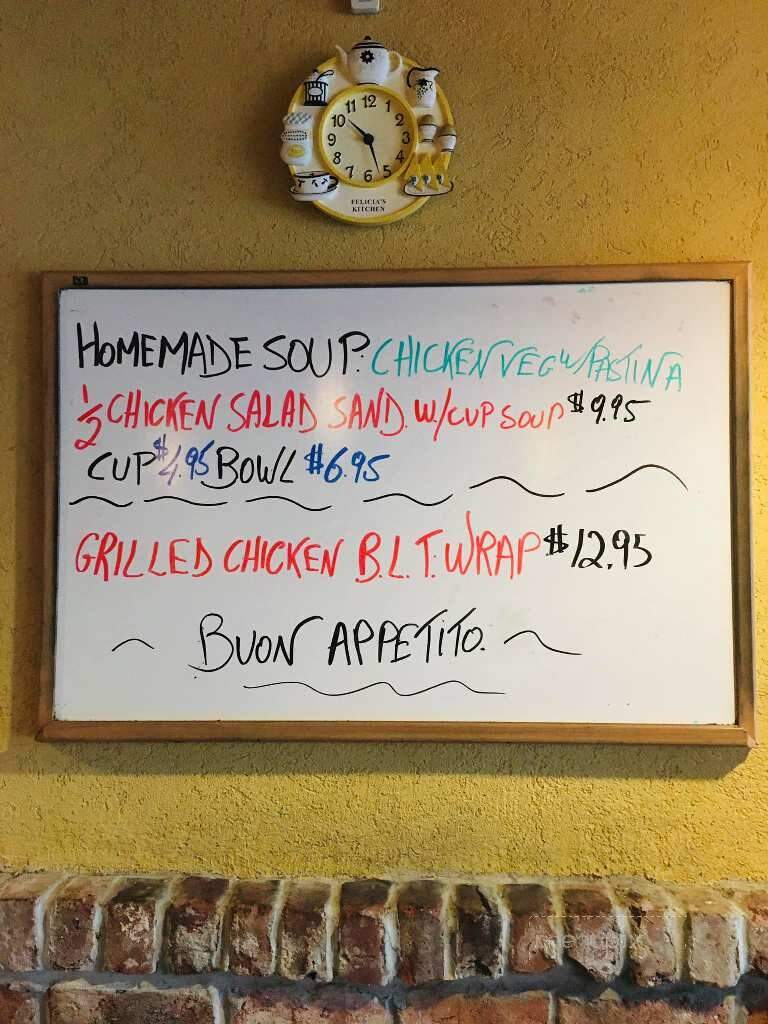 11 12 1
10 2
9 3
8 4
7 6 5
FELICIA'S
KITCHEN
HOMEMADE SOUP: CHICKEN VEG W/PASTINA
1/2 CHICKEN SALAD SAND. W/CUP SOUP $9.95
CUP $4.95 BOWL $6.95
GRILLED CHICKEN B.L.T. WRAP $12.95
~ BUON APPETITO. ~
menupix